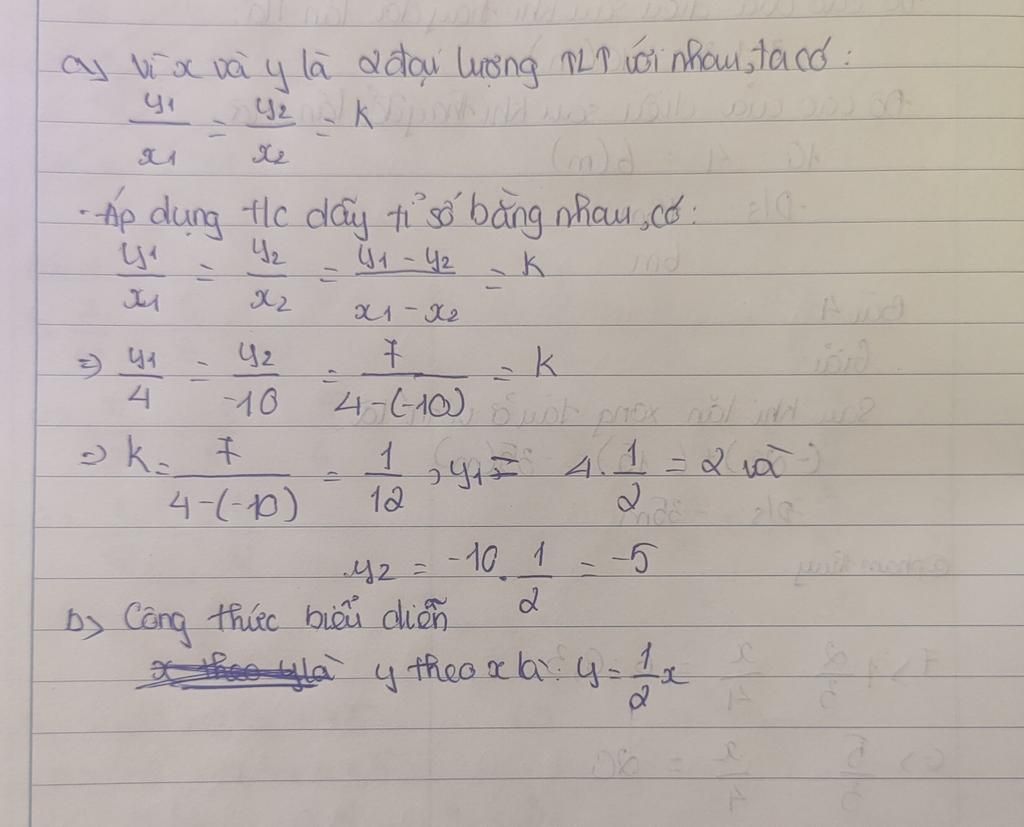 a) Vì x và y là 2 đại lượng TLT với nhau, ta có:
y1/x1 = y2/x2 = k
- Áp dụng t/c dãy tỉ số bằng nhau, có:
y1/x1 = y2/x2 = y1 - y2/x1 - x2 = k
=> y1/4 = y2/-10 = 7/4-(-10) = k
=> k = 7/4-(-10) = 1/12, y1 = 4.1/2 = 2 và
y2 = -10.1/2 = -5
b) Công thức biểu diễn
y theo x là: y = 1/2x